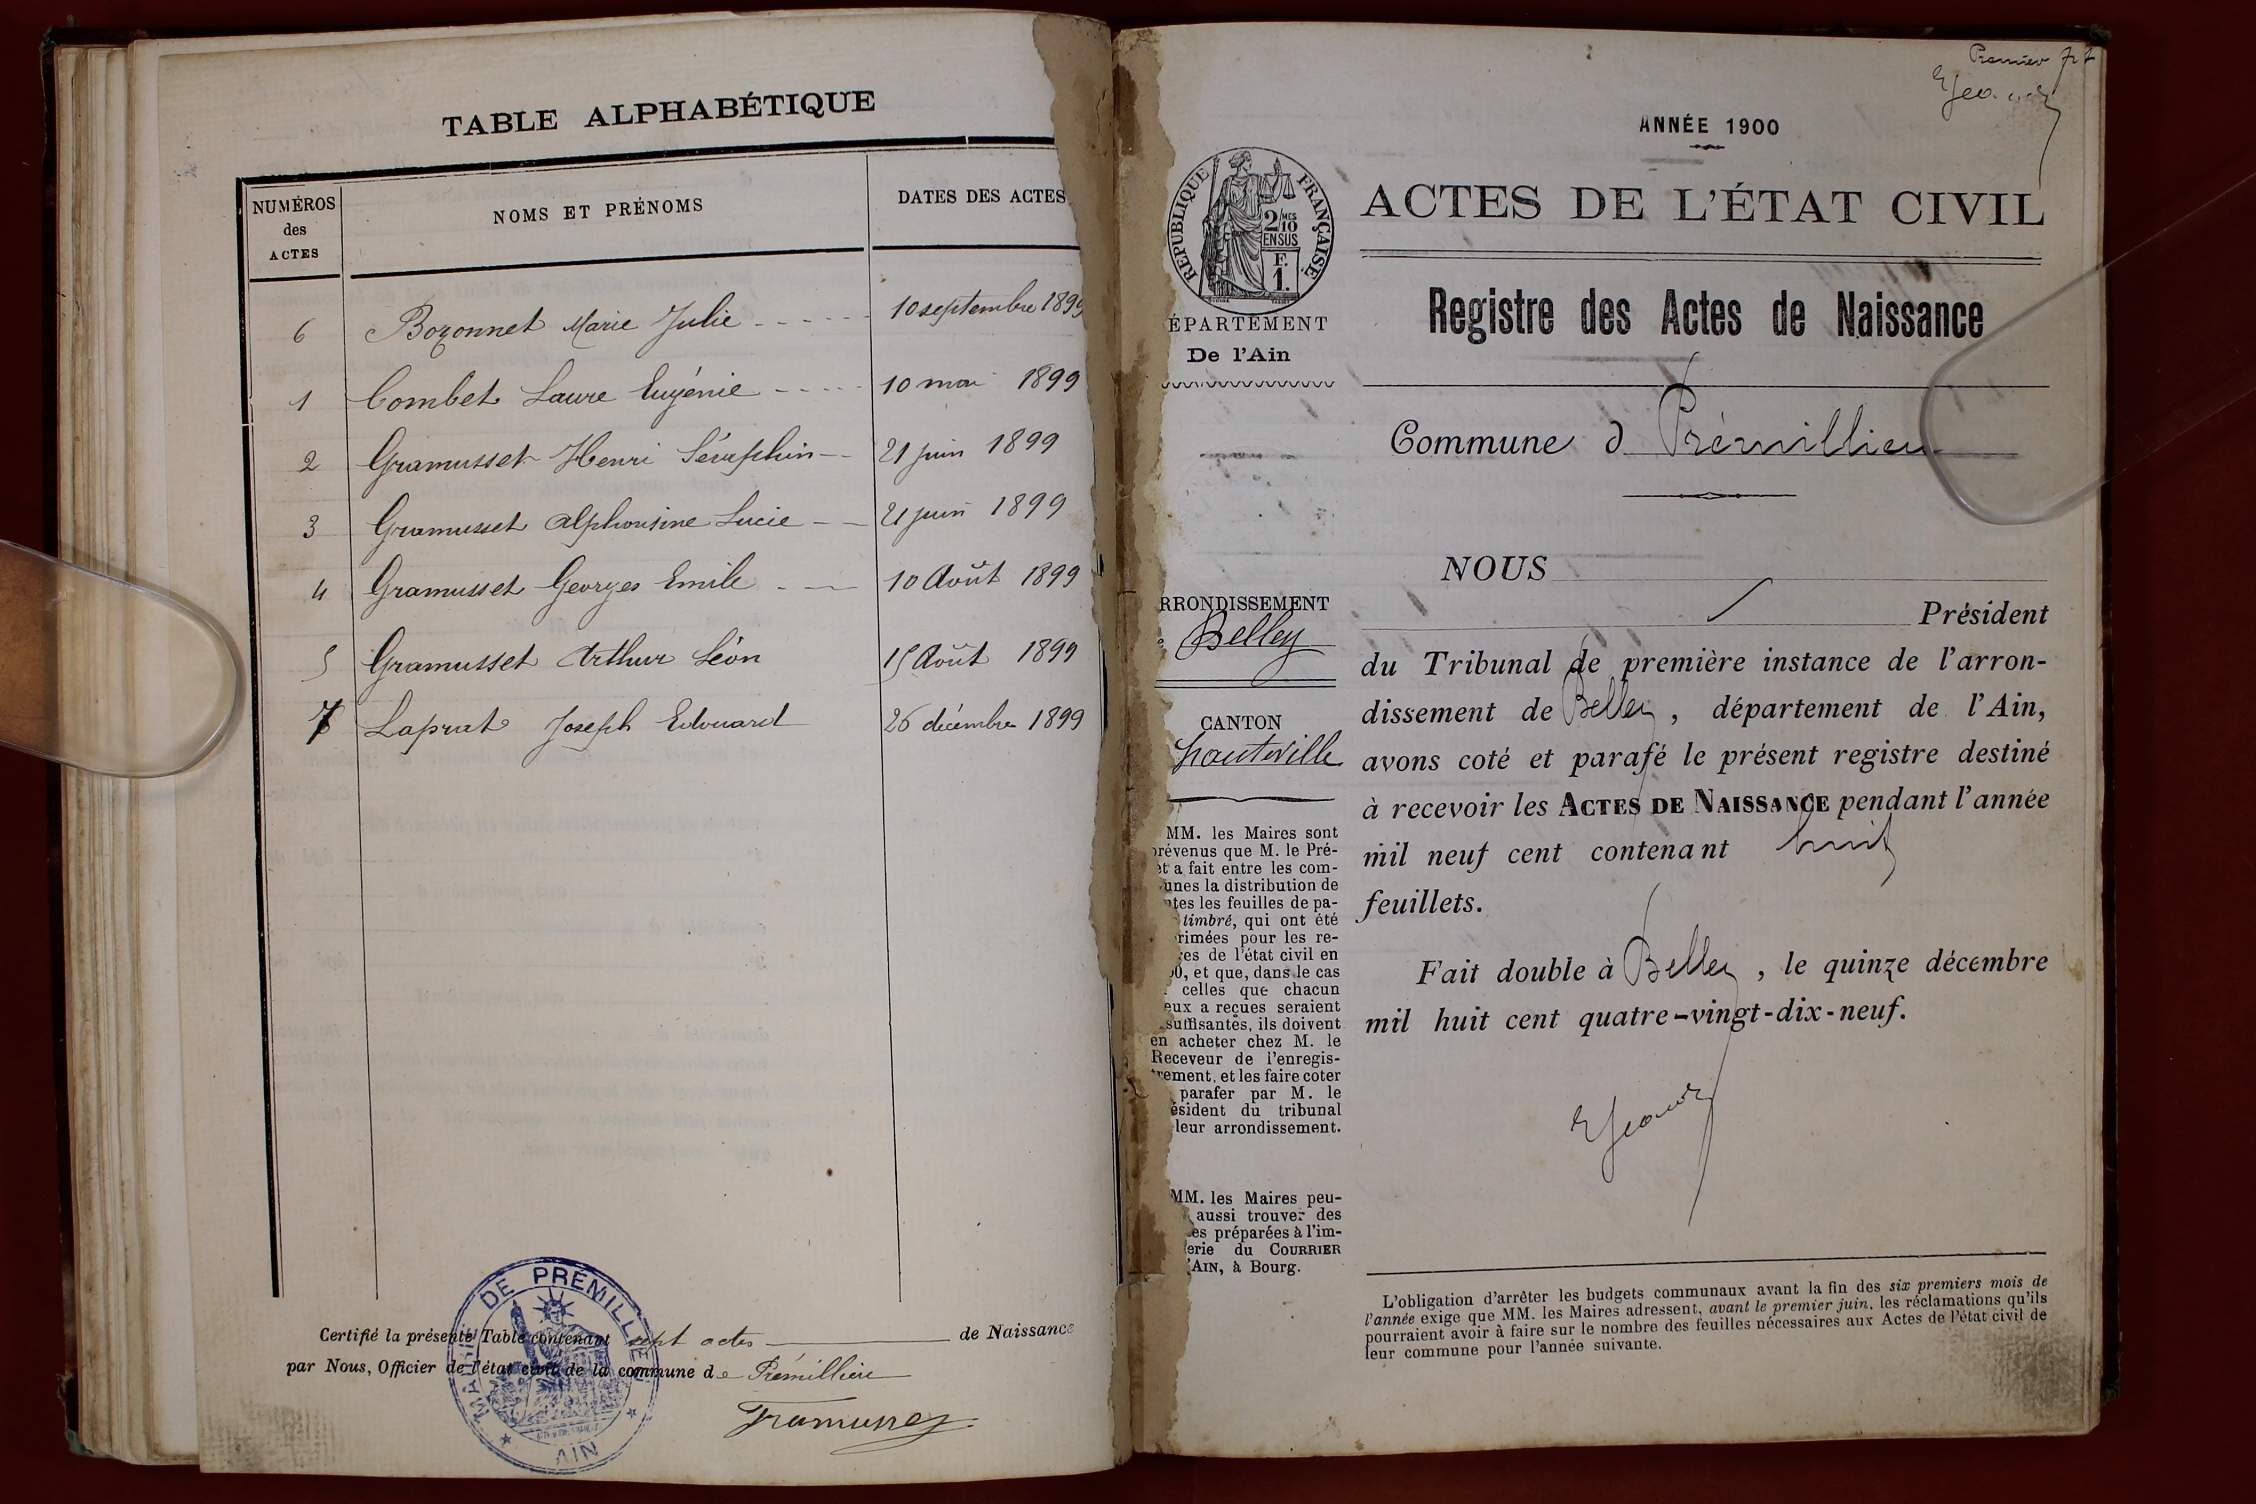 TABLE ALPHABÉTIQUE
NUMÉROS des ACTES NOMS ET PRÉNOMS DATES DES ACTES
6 Bozonnet Marie Julie 10 septembre 1899
1 Combet Laure Eugénie 10 mai 1899
2 Gramusset Henri Séraphin 21 juin 1899
3 Gramusset Alphonsine Lucie 21 juin 1899
4 Gramusset Georges Emile 10 Août 1899
5 Gramusset Arthur Léon 15 Août 1899
7 Laprat Joseph Edouard 26 décembre 1899
Certifié la présente Table contenant sept actes de Naissance
par Nous, Officier de l'état civil de la commune de Prémillieu
Gramusset
MAIRIE DE PRÉMILLIEU
AIN
Premier
ANNÉE 1900
RÉPUBLIQUE FRANÇAISE
2/10 MES
EN SUS
F.
1.
ÉPARTEMENT
De l'Ain
RRONDISSEMENT
Belley
CANTON
hauteville
MM. les Maires sont
prévenus que M. le Pré-
et a fait entre les com-
unes la distribution de
utes les feuilles de pa-
timbré, qui ont été
rimées pour les re-
res de l'état civil en
00, et que, dans le cas
celles que chacun
eux a reçues seraient
suffisantes, ils doivent
en acheter chez M. le
Receveur de l'enregis-
trement, et les faire coter
parafer par M. le
ésident du tribunal
leur arrondissement.
MM. les Maires peu-
aussi trouver des
es préparées à l'im-
erie du COURRIER
'AIN, à Bourg.
ACTES DE L'ÉTAT CIVIL
Registre des Actes de Naissance
Commune d Prémillieu
NOUS
Président
du Tribunal de première instance de l'arron-
dissement de Belley, département de l'Ain,
avons coté et parafé le présent registre destiné
à recevoir les ACTES DE NAISSANCE pendant l'année
mil neuf cent contenant huit
feuillets.
Fait double à Belley, le quinze décembre
mil huit cent quatre-vingt-dix-neuf.
L'obligation d'arrêter les budgets communaux avant la fin des six premiers mois de
l'année exige que MM. les Maires adressent, avant le premier juin, les réclamations qu'ils
pourraient avoir à faire sur le nombre des feuilles nécessaires aux Actes de l'état civil de
leur commune pour l'année suivante.